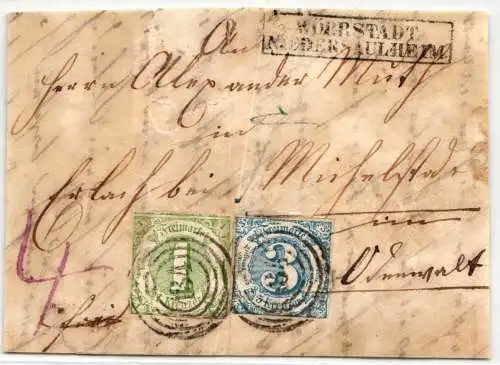 WOERSTADT
NIEDERSAULHEIM
An
Herrn Alexander Muth
in
Erlach bei Michelstadt
im
Odenwalt
4
frei
Freimarke
EIN
Kreuzer
Freimarke
3
Kreuzer